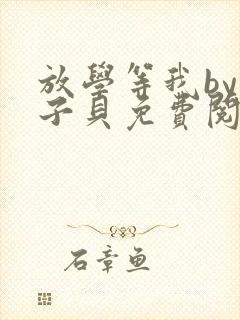 放學等我by
子貝免費閱
石章魚